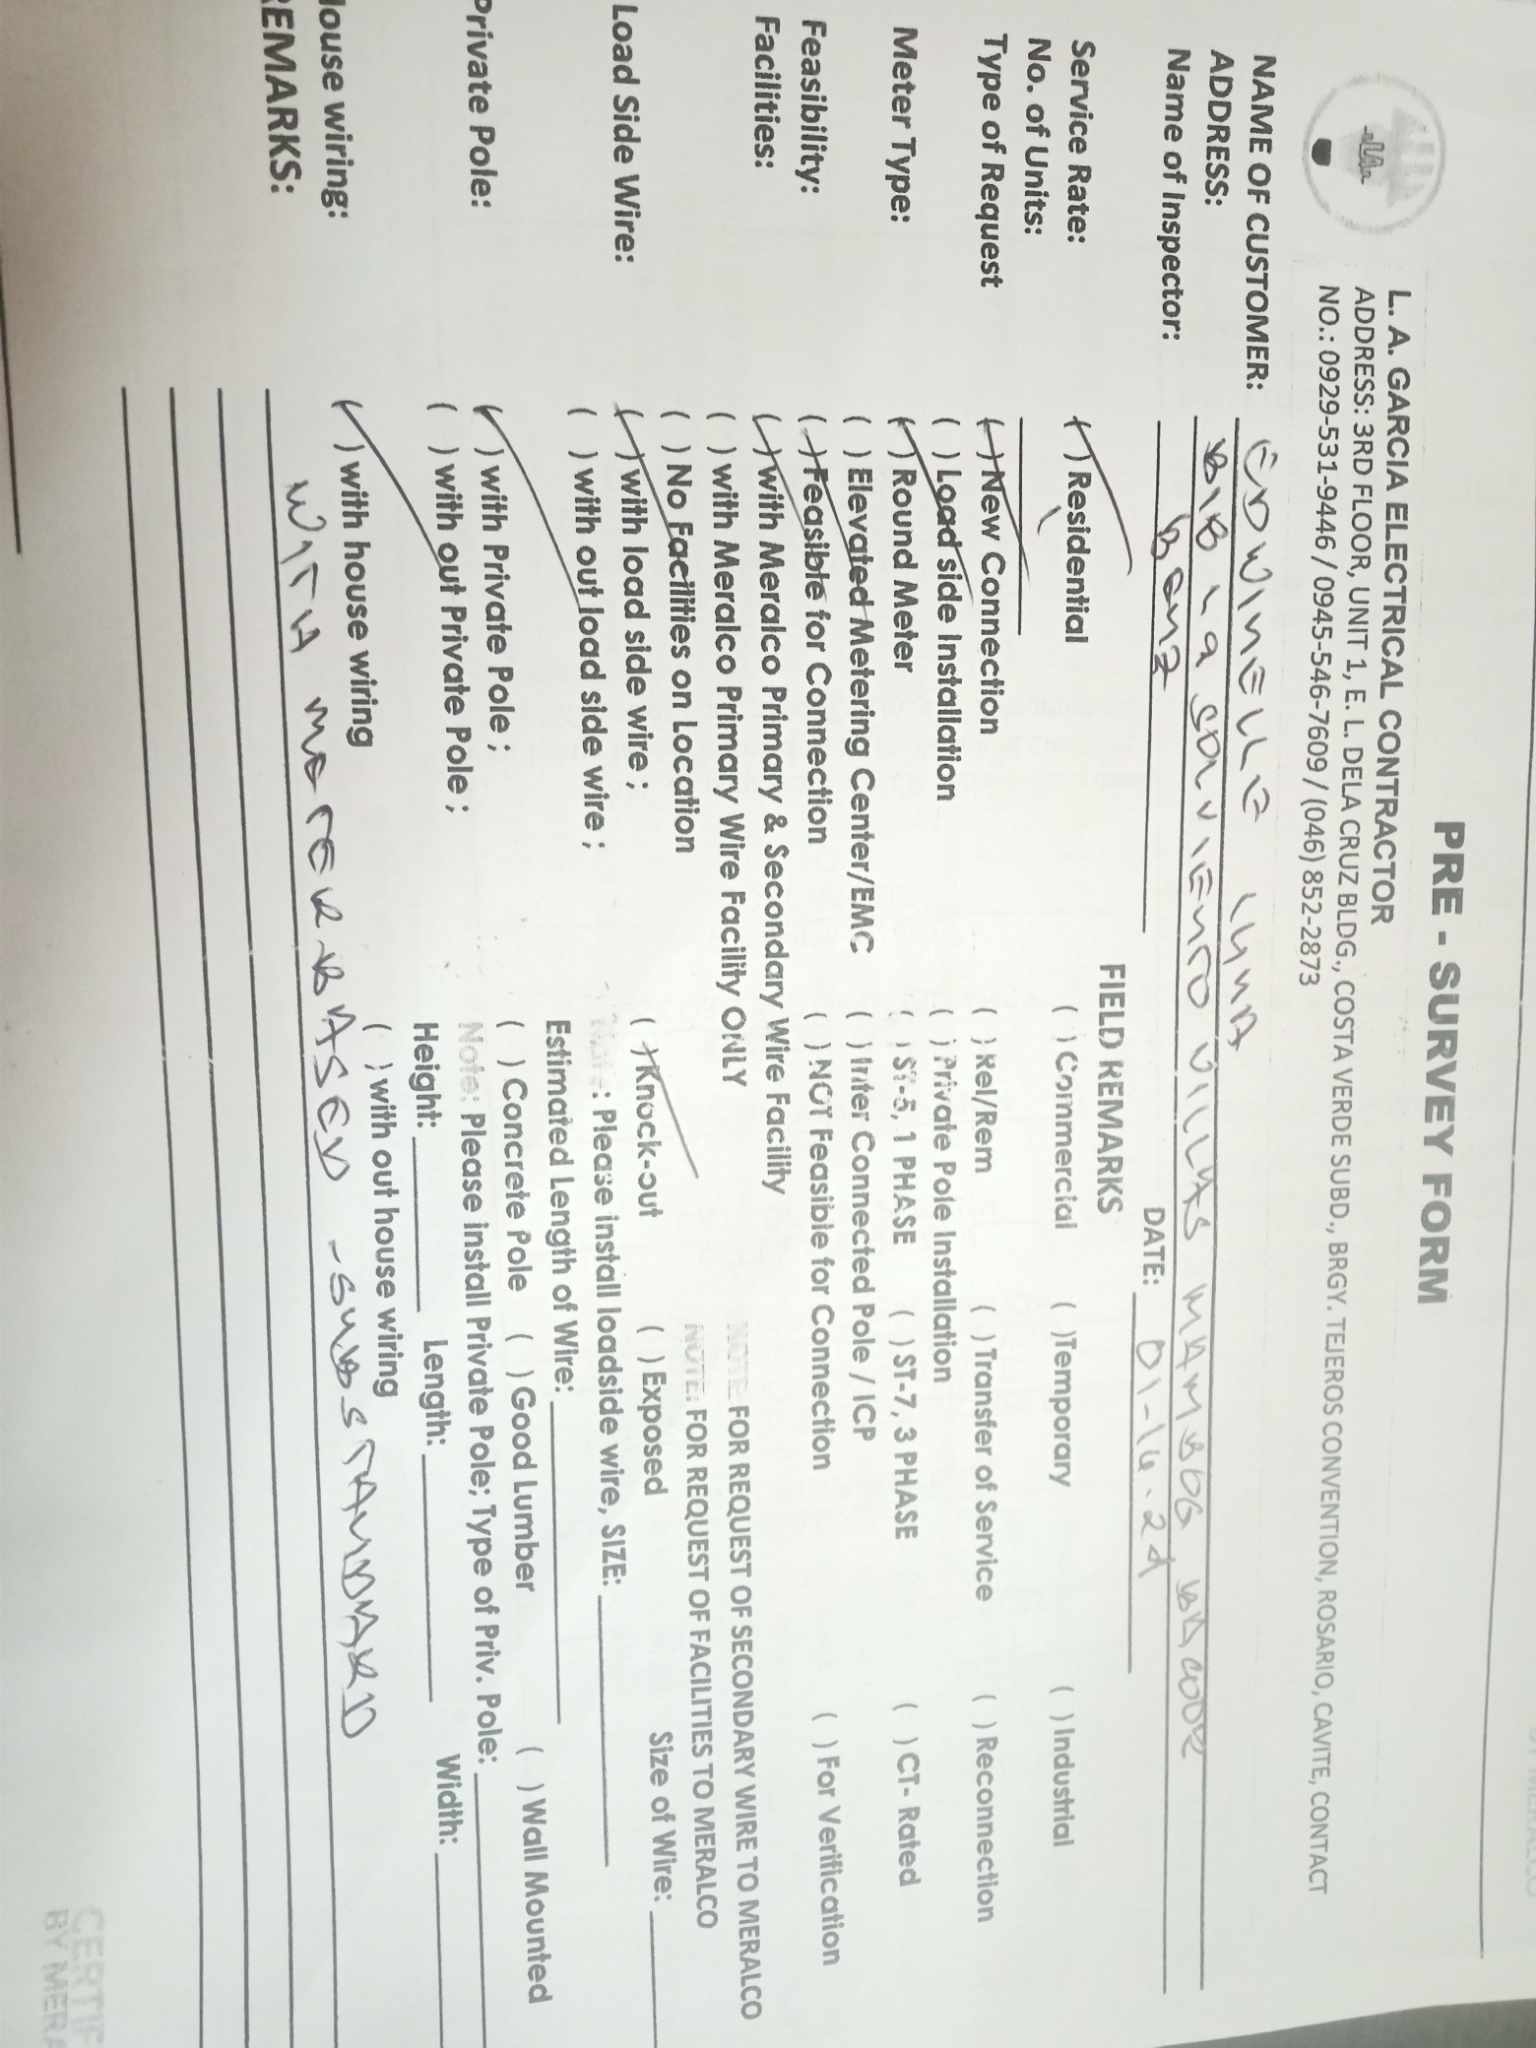 BY MERALCO
PRE - SURVEY FORM
L. A. GARCIA ELECTRICAL CONTRACTOR
ADDRESS: 3RD FLOOR, UNIT 1, E. L. DELA CRUZ BLDG., COSTA VERDE SUBD., BRGY. TEJEROS CONVENTION, ROSARIO, CAVITE, CONTACT
NO.: 0929-531-9446 / 0945-546-7609 / (046) 852-2873
NAME OF CUSTOMER: EDWINELLE LUNA
ADDRESS: B18 L9 SOLVIENTO VILLAS MAMBOG, BACOOR
Name of Inspector: BENZ DATE: 01-16-24
FIELD REMARKS
Service Rate: (✓) Residential ( ) Commercial ( ) Temporary ( ) Industrial
No. of Units: 1
Type of Request (✓) New Connection ( ) Rel/Rem ( ) Transfer of Service ( ) Reconnection
( ) Load side Installation ( ) Private Pole Installation
Meter Type: (✓) Round Meter ( ) ST-5, 1 PHASE ( ) ST-7, 3 PHASE ( ) CT- Rated
( ) Elevated Metering Center/EMC ( ) Inter Connected Pole / ICP
Feasibility: (✓) Feasible for Connection ( ) NOT Feasible for Connection ( ) For Verification
Facilities: (✓) with Meralco Primary & Secondary Wire Facility
( ) with Meralco Primary Wire Facility ONLY NOTE: FOR REQUEST OF SECONDARY WIRE TO MERALCO
( ) No Facilities on Location NOTE: FOR REQUEST OF FACILITIES TO MERALCO
Load Side Wire: (✓) with load side wire ; (✓) Knock-out ( ) Exposed Size of Wire:
( ) with out load side wire ; Note: Please install loadside wire, SIZE:
Estimated Length of Wire:
Private Pole: (✓) with Private Pole ; ( ) Concrete Pole ( ) Good Lumber ( ) Wall Mounted
( ) with out Private Pole ; Note: Please install Private Pole; Type of Priv. Pole:
Height: Length: Width:
House wiring: (✓) with house wiring ( ) with out house wiring
REMARKS: WITH METER BASED - SUBSTANDARD
CERTIF
BY MERA